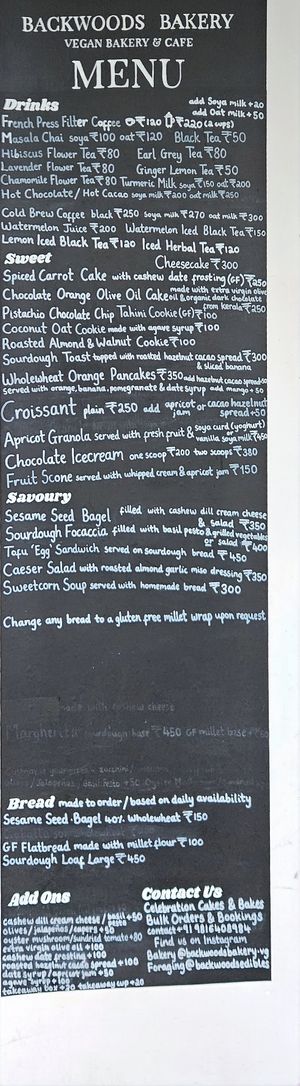 BACKWOODS BAKERY
VEGAN BAKERY & CAFE
MENU
Drinks add Soya milk +20
add Oat milk +50
French Press Filter Coffee ₹120 ₹220 (2 cups)
Masala Chai soya ₹100 oat ₹120 Black Tea ₹50
Hibiscus Flower Tea ₹80 Earl Grey Tea ₹80
Lavender Flower Tea ₹80 Ginger Lemon Tea ₹50
Chamomile Flower Tea ₹80 Turmeric Milk soya ₹150 oat ₹200
Hot Chocolate / Hot Cacao soya milk ₹200 oat milk ₹250
Cold Brew Coffee black ₹250 soya milk ₹270 oat milk ₹300
Watermelon Juice ₹200 Watermelon Iced Black Tea ₹150
Lemon Iced Black Tea ₹120 Iced Herbal Tea ₹120
Sweet Cheesecake ₹300
Spiced Carrot Cake with cashew date frosting (GF) ₹250
Chocolate Orange Olive Oil Cake made with extra virgin olive
oil & organic dark chocolate
from kerala ₹250
Pistachio Chocolate Chip Tahini Cookie (GF) ₹100
Coconut Oat Cookie made with agave syrup ₹100
Roasted Almond & Walnut Cookie ₹100
Sourdough Toast topped with roasted hazelnut cacao spread ₹300
& sliced banana
Wholewheat Orange Pancakes ₹350 add hazelnut cacao spread +50
served with orange, banana, pomegranate & date syrup add mango +50
Croissant plain ₹250 add apricot or cacao hazelnut
jam spread +50
Apricot Granola served with fresh fruit & soya curd (yoghurt)
vanilla soya milk ₹450
Chocolate Icecream one scoop ₹200 two scoops ₹380
Fruit Scone served with whipped cream & apricot jam ₹150
Savoury
Sesame Seed Bagel filled with cashew dill cream cheese
& salad ₹350
Sourdough Focaccia filled with basil pesto & grilled vegetables
or salad ₹400
Tofu 'Egg' Sandwich served on sourdough bread ₹450
Caeser Salad with roasted almond garlic miso dressing ₹350
Sweetcorn Soup served with homemade bread ₹300
Change any bread to a gluten free millet wrap upon request
made with cashew cheese
Margherita sourdough base ₹450 GF millet base +₹50
Bread made to order / based on daily availability
Sesame Seed Bagel 40% Wholewheat ₹150
GF Flatbread made with millet flour ₹100
Sourdough Loaf Large ₹450
Add Ons
cashew dill cream cheese / basil pesto +50
olives / jalapeños / capers +50
oyster mushroom / sundried tomato +80
extra virgin olive oil +100
cashew date frosting +100
roasted hazelnut cacao spread +100
date syrup / apricot jam +50
agave syrup +100
takeaway box +20 takeaway cup +20
Contact Us
Celebration Cakes & Bakes
Bulk Orders & Bookings
contact +91 9816408984
Find us on Instagram
Bakery @backwoodsbakery.vg
Foraging @backwoodsedibles